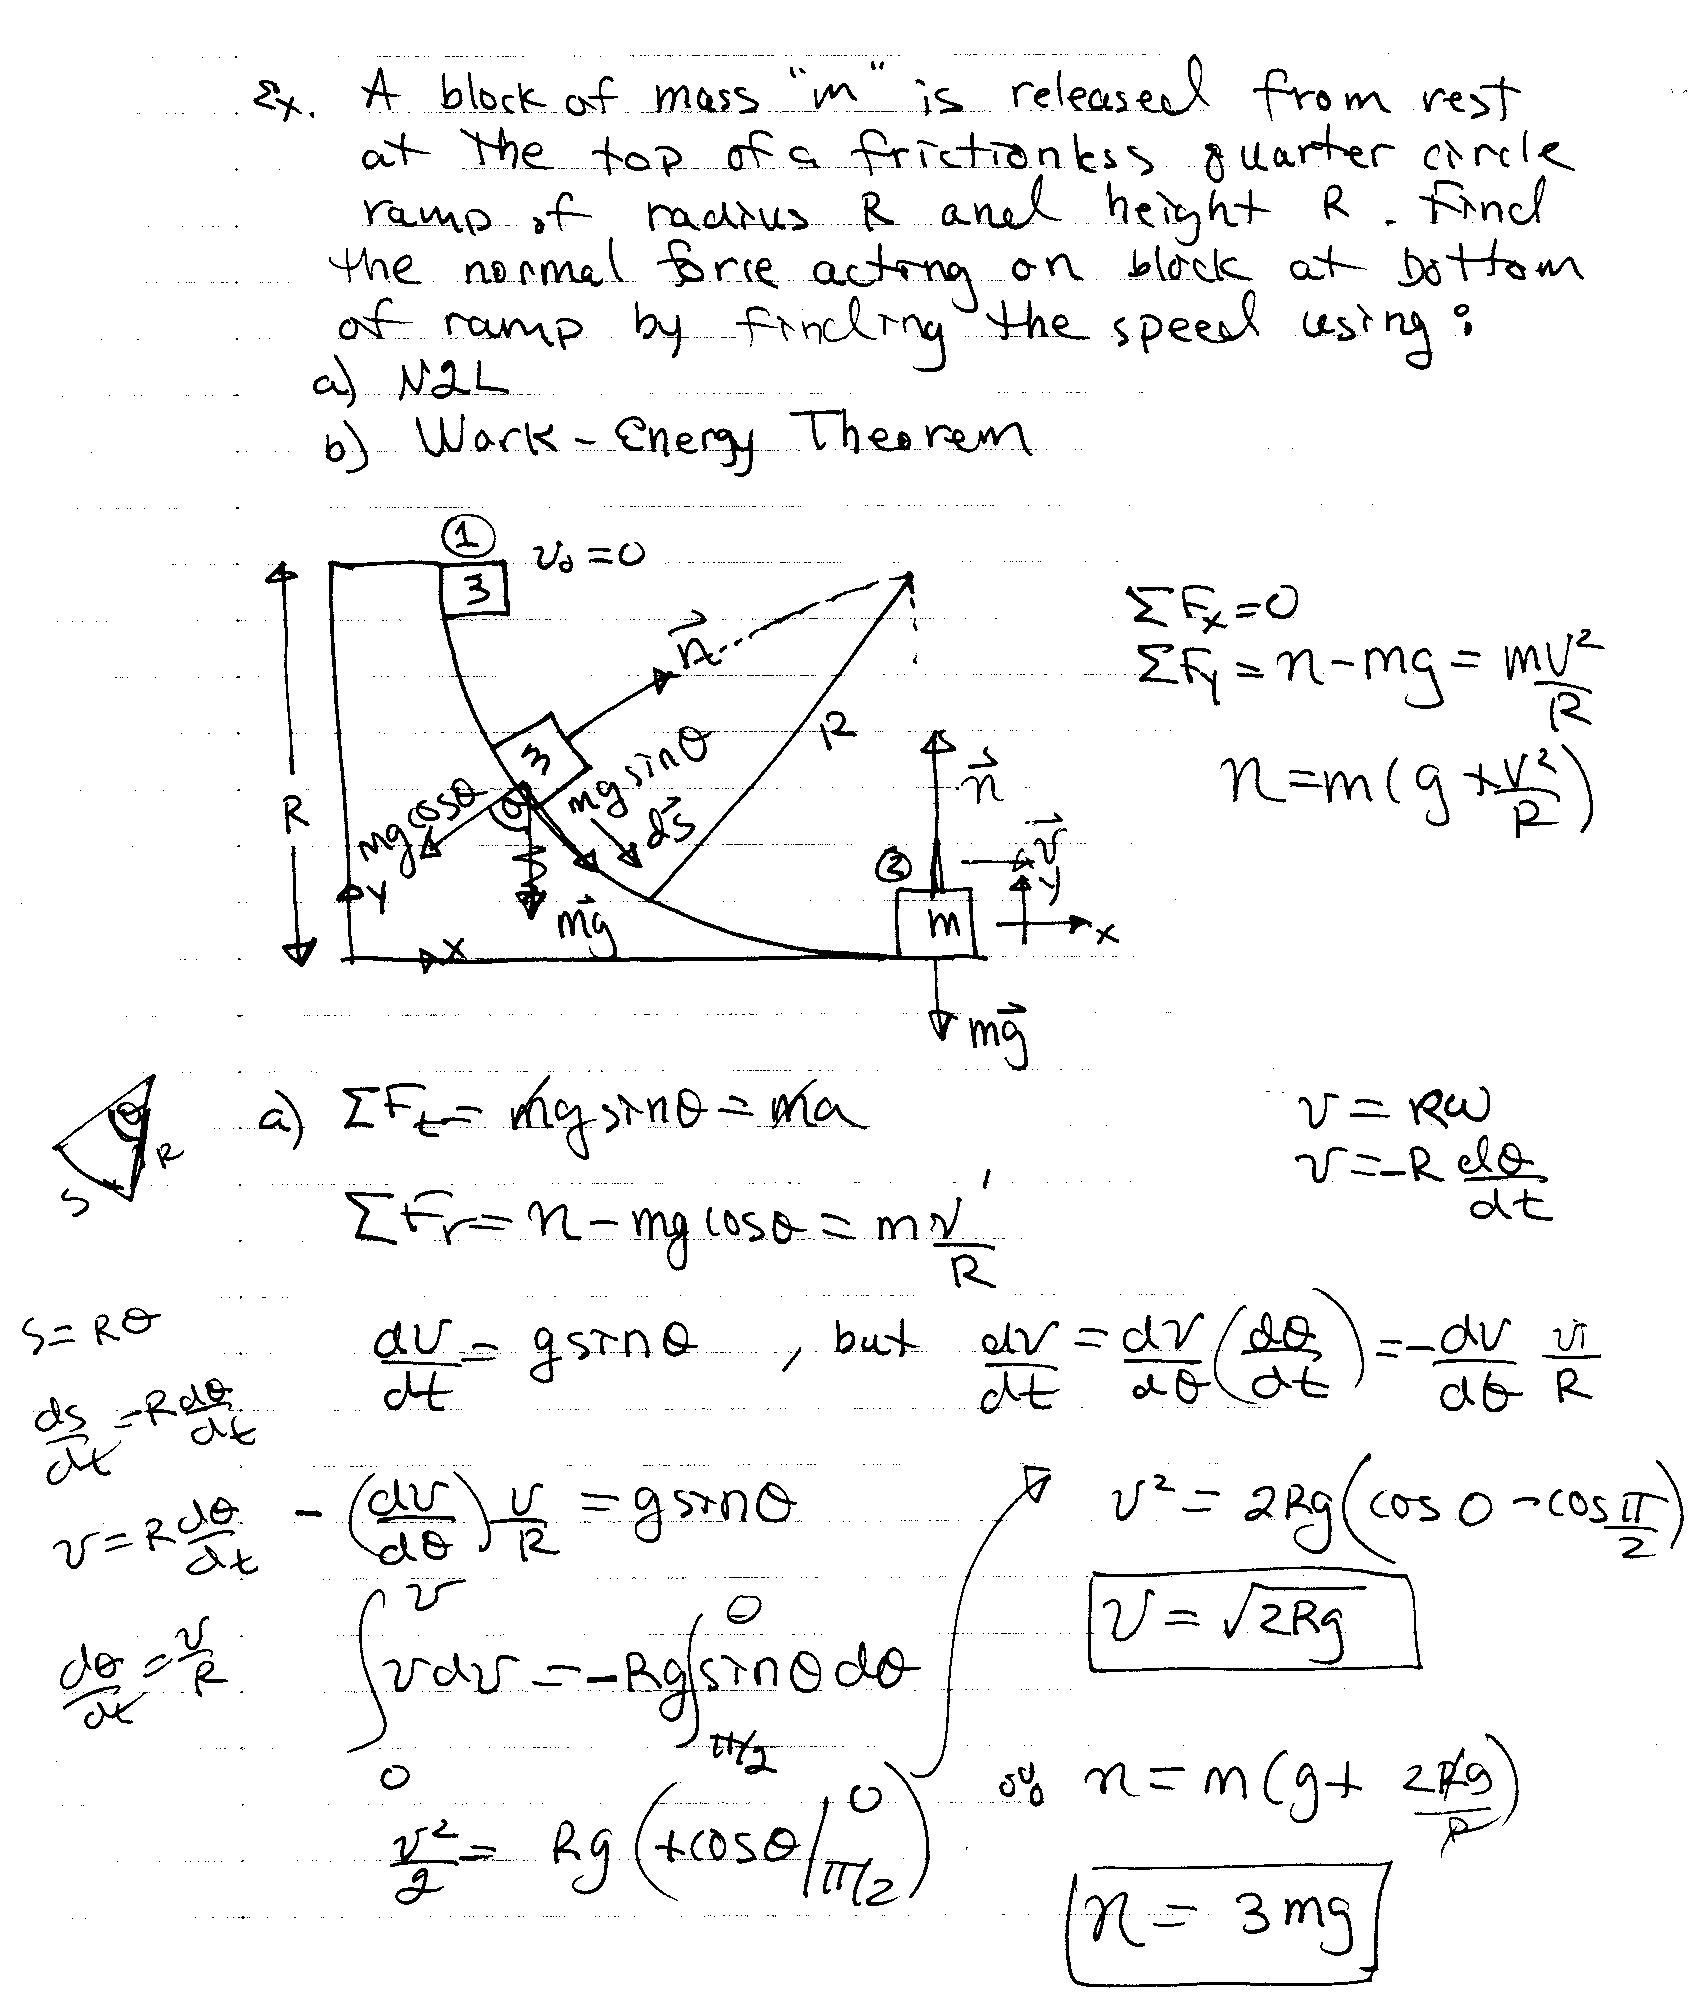 Ex. A block of mass "m" is released from rest
at the top of a frictionless quarter circle
ramp of radius R and height R. Find
the normal force acting on block at bottom
of ramp by finding the speed using:
a) N2L
b) Work-Energy Theorem
① v₀=0
m
R
n⃗
m
mg cosθ
θ
mg sinθ
ds⃗
mg⃗
R
y
x
②
n⃗
v⃗
m
y
x
mg⃗
ΣFx=0
ΣFy=n-mg=mv²/R
n=m(g+v²/R)
θ
R
S
a) ΣFt=mg sinθ=ma
ΣFr=n-mg cosθ=mv²/R
v=Rω
v=-R dθ/dt
S=Rθ
ds/dt=R dθ/dt
v=R dθ/dt
dθ/dt=v/R
dv/dt=g sinθ, but dv/dt=dv/dθ(dθ/dt)=-dv/dθ v/R
-(dv/dθ)v/R=g sinθ
∫₀^v v dv=-Rg∫_{π/2}^θ sinθ dθ
v²/2=Rg(+cosθ|_{π/2}^0)
v²=2Rg(cos0-cos π/2)
v=√2Rg
∴ n=m(g+2Rg/R)
n=3mg